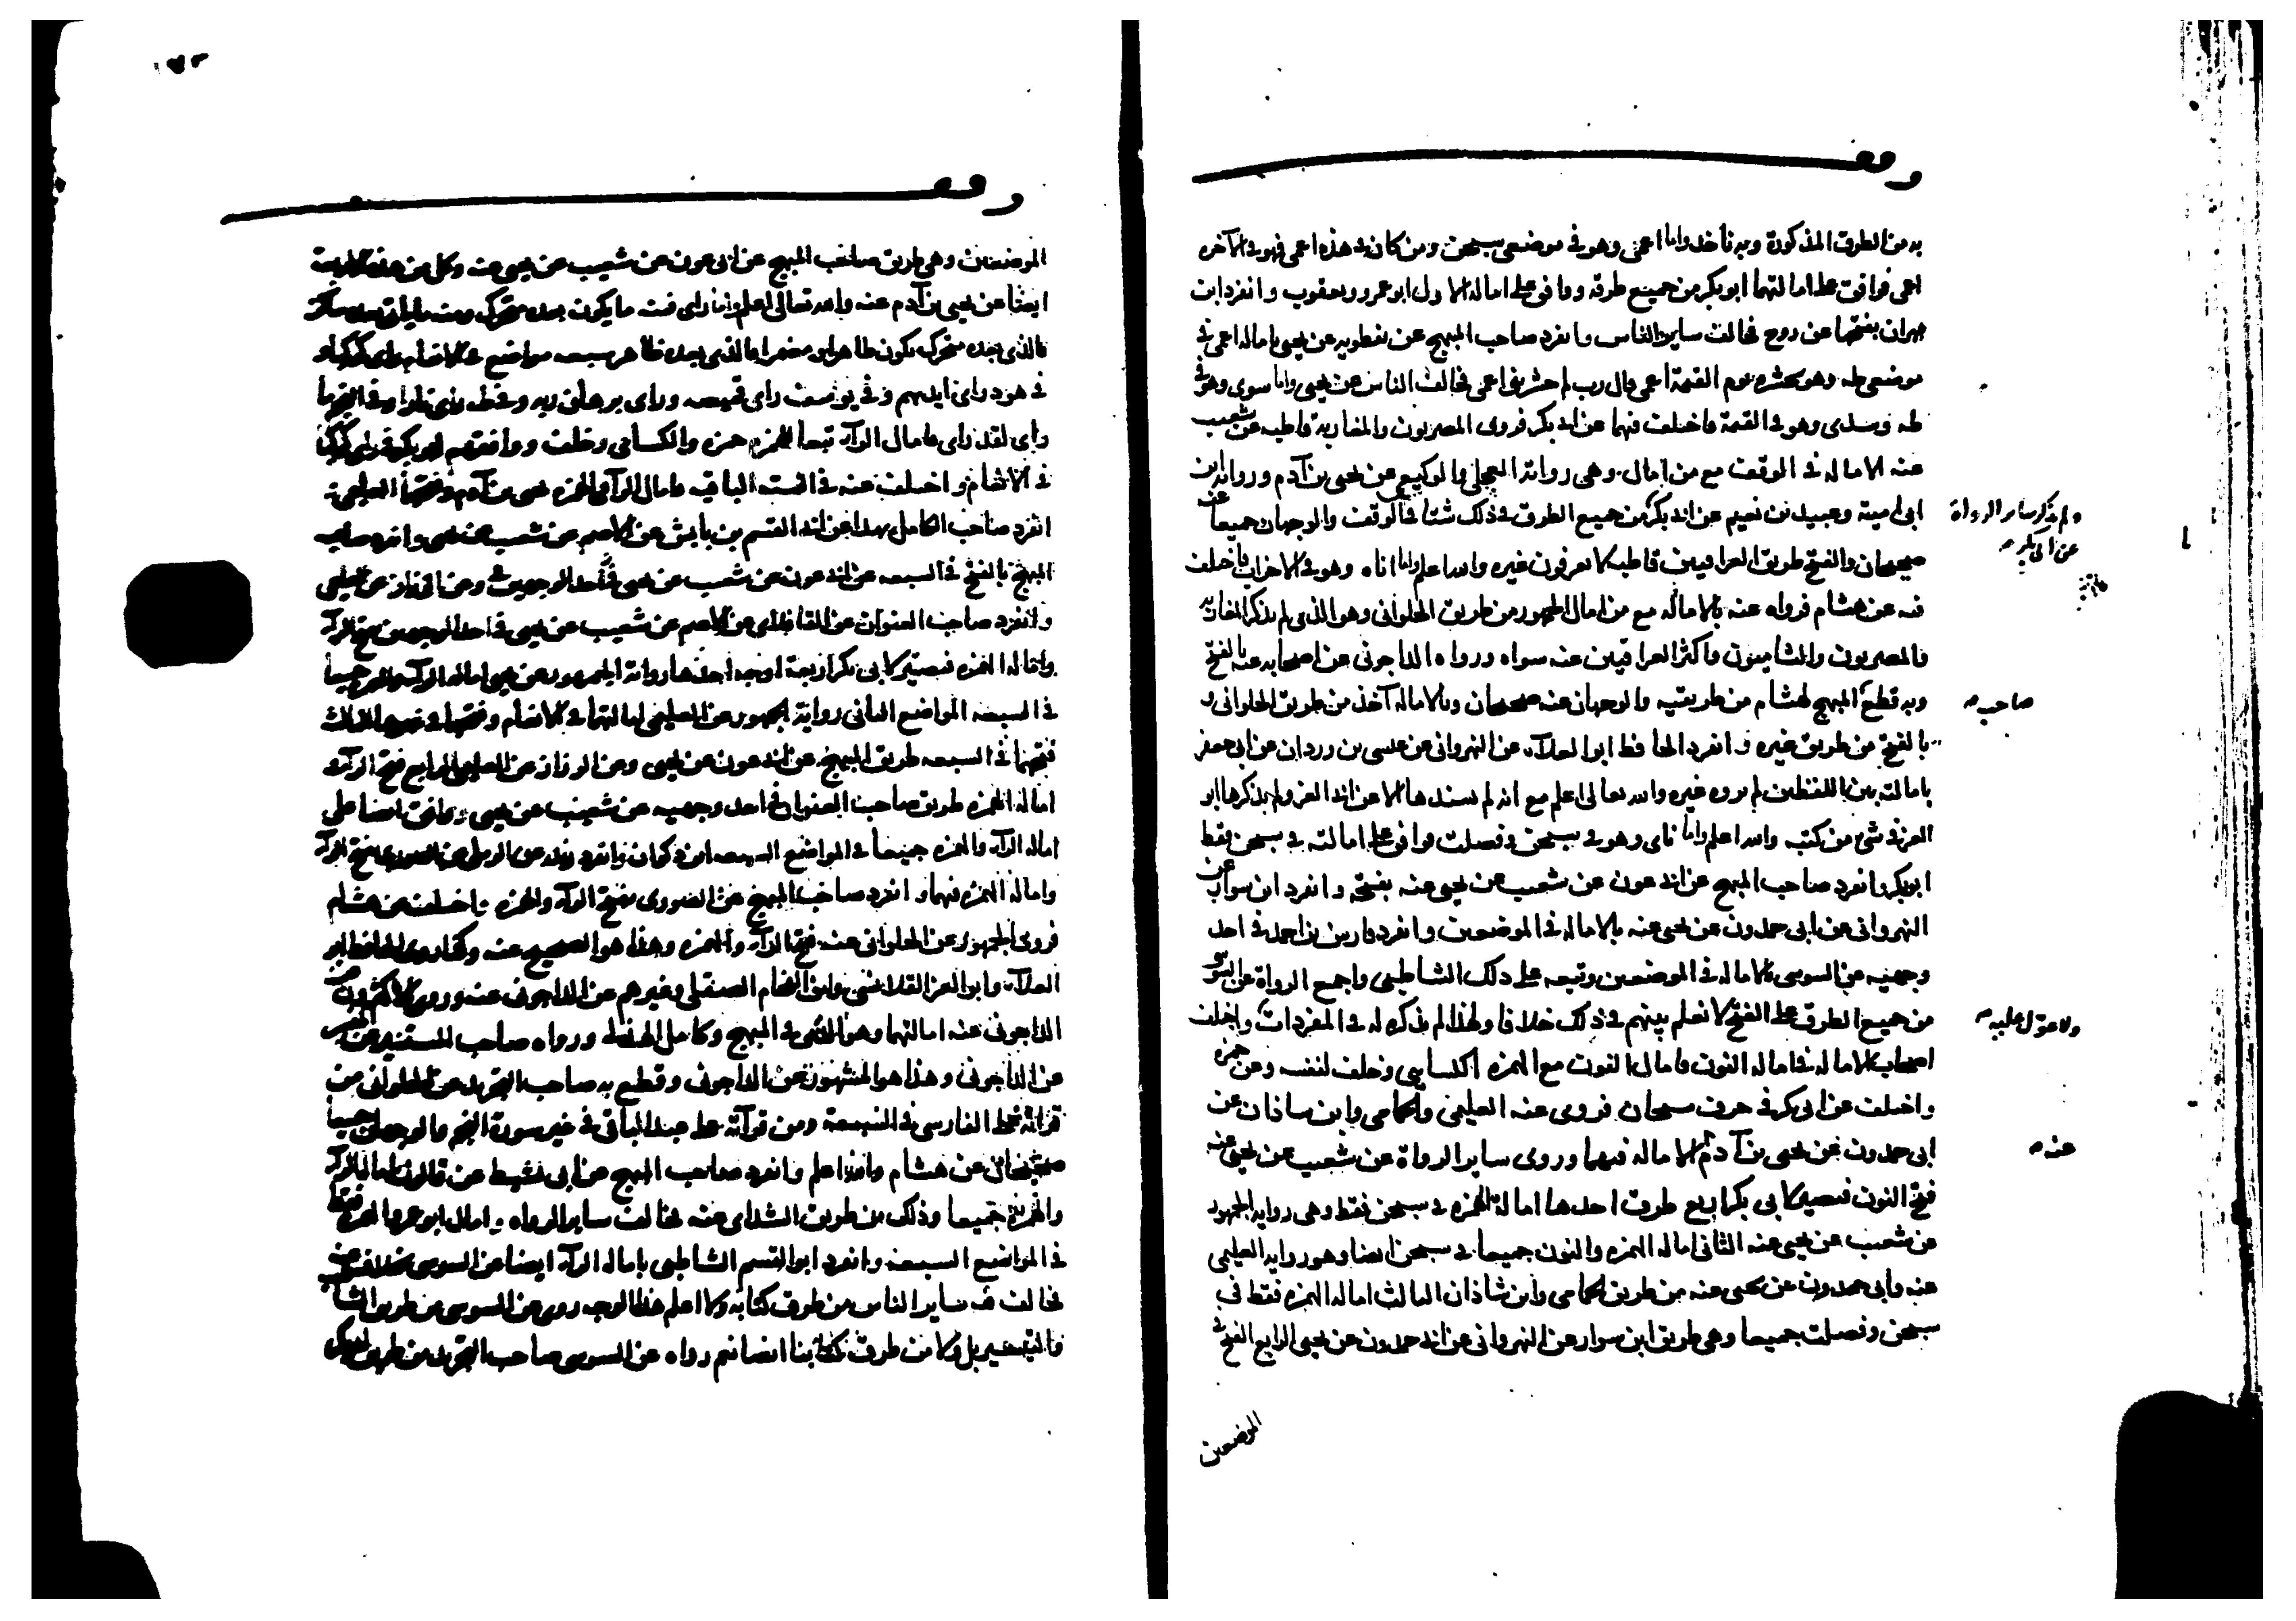 وقف
به من الطرق المذكورة وبه نأخذ واما اعمى وهو في موضعي سبحن ومن كان في هذه اعمى فهو في الآخره
اعمى فوافق على امالتهما ابو بكر من جميع طرقه ووافق على اماله الاول ابو عمرو ويعقوب وانفرد ابن
مهران بفتحها عن روح فخالف ساير الناس وانفرد صاحب المبهج عن نفطويه عن يحيى باماله اعمى في
موضعي طه وهو نحشره يوم القيمة اعمى قال رب لم حشرتني اعمى فخالف الناس عن يحيى واما سوى وهو في
طه وسدى وهو في القيمة فاختلف فيهما عن ابي بكر فروى المصريون والمغاربة قاطبه عن شعيب
عنه الاماله في الوقف مع من امال وهي رواية العجلي والوكيعي عن يحيى بن آدم ورواية ابن
ابي امية وعبيد بن نعيم عن ابي بكر من جميع الطرق في ذلك شيئا في الوقف والوجهان جميعا عنه
ولم يذكر ساير الرواة
عن ابي بكر
صحيحان والفتح طريق العراقيين قاطبه لا يعرفون غيره والله اعلم واما اناه وهو في الاحزاب فاختلف
فيه عن هشام فرواه عنه بالاماله مع من امال الجمهور من طريق الحلواني وهو الذي لم يذكر المغاربه
والمصريون والشاميون واكثر العراقيين عنه سواه ورواه الداجوني عن اصحابه عنه بالفتح
وبه قطع المبهج لهشام من طريقيه والوجهان عنه صحيحان وبالاماله آخذ من طريق الحلواني و
صاحب
بالفتح من طريق غيره وانفرد الحافظ ابو العلاء عن النهرواني عن عيسى بن وردان عن ابي جعفر
بامالته بين اللفظين لم يروه غيره والله تعالى اعلم مع انه لم يسندها الا عن ابي العز ولم يذكرها ابو
العز في شئ من كتبه والله اعلم واما ناى وهو في سبحن وفصلت فوافق على امالته في سبحن فقط
ابو بكر وانفرد صاحب المبهج عن ابي عون عن شعيب عن يحيى عنه بفتحه وانفرد ابن سوار عن
النهرواني عن ابي حمدون عن يحيى عنه بالاماله في الموضعين وانفرد فارس بن احمد في احد
وجهيه عن السوسي بالاماله في الموضعين وتبعه على ذلك الشاطبي واجمع الرواة عن السوسي
من جميع الطرق على الفتح لا نعلم بينهم في ذلك خلافا ولهذا لم يذكره له في المفردات واختلف
ولا عول عليه
اصحاب الاماله في اماله النون فامال النون مع الهمزه الكسايي وخلف لنفسه وعن حمزه
واختلف عن ابي بكر في حرف سبحان فروى عنه العليمي والحمامي وابن شاذان عن
ابي حمدون عن يحيى بن آدم الاماله فيهما وروى ساير الرواة عن شعيب عن يحيى عنه
عنه
فتح النون فيصير لابي بكر اربع طرق احدها امالة الهمزه في سبحن فقط وهي رواية الجمهور
عن شعيب عن يحيى عنه الثاني اماله الهمزه والنون جميعا في سبحن ايضا وهو رواية العليمي
عنه وابي حمدون عن يحيى عنه من طريق الحمامي وابن شاذان الثالث اماله الهمزه فقط في
سبحن وفصلت جميعا وهي طريق ابن سوار عن النهرواني عن ابي حمدون عن يحيى الرابع الفتح في
الموضعين
وقف
الموضعين وهي طريق صاحب المبهج عن ابي عون عن شعيب عن يحيى عنه وكل من هذه الاربعة
ايضا عن يحيى بن آدم عنه والله تعالى اعلم واما راى فمنه ما يكون بعده متحرك ومنه ما ياتي بعده ساكن
فالذي بعده متحرك يكون ظاهرا ومضمرا فالذي بعده ظاهر سبعه مواضع في الانعام راى كوكبا و
في هود راى ايديهم وفي يوسف راى قميصه وراى برهان ربه وفي طه راى نارا وفي النجم ما
راى لقد راى فامال الراء تبعا للهمزه حمزه والكسائي وخلف ووافقهم ابو بكر في راى كوكبا
في الانعام واختلف عنه في الستة الباقيه فامال الراء والهمزه يحيى بن آدم وفتحها العليمي
انفرد صاحب الكامل بهذا عن ابي القسم بن بابش عن الاصم عن شعيب عن يحيى وانفرد صاحب
المبهج بالفتح في السبعه عن ابي عون عن شعيب عن يحيى في احد الوجهين وعن الرزاز عن العليمي
وانفرد صاحب العنوان عن القافلاى عن الاصم عن شعيب عن يحيى في احد الوجهين بفتح الراء
وامالة الهمزه فيصير لابي بكر اربعة اوجه احدها رواية الجمهور عن يحيى امالة الراء والهمزه جميعا
في السبعه المواضع الثاني رواية الجمهور عن العليمي امالتهما في الانعام وفتحهما في غيرها الثالث
فتحهما في السبعه طريق المبهج عن ابي عون عن يحيى وعن الرزاز عن العليمي الرابع فتح الراء و
امالة الهمزه طريق صاحب العنوان في احد وجهيه عن شعيب عن يحيى ووافق ايضا على
اماله الراء والهمزه جميعا في المواضع السبعه ابن ذكوان وانفرد زيد عن الرملي عن الصوري بفتح الراء
وامالة الهمزه فيها وانفرد صاحب المبهج عن الصوري بفتح الراء والهمزه واختلف عن هشام
فروى الجمهور عن الحلواني عنه فتح الراء والهمزه وهذا هو الصحيح عنه وكذا روى الحافظ ابو
العلاء وابو العز القلانسي وابن الفحام الصقلي وغيرهم عن الداجوني عنه وروى الاكثرون عن
الداجوني عنه امالتهما وهو الذي في المبهج وكامل الهذلي ورواه صاحب المستنير عن المفسر
عن الداجوني وهذا هو المشهور عن الداجوني وقطع به صاحب التجريد عن الحلواني من
قراءته على الفارسي في السبعة ومن قرآته على عبد الباقي في غير سورة النجم والوجهان جميعا
صحيحان عن هشام والله اعلم وانفرد صاحب المبهج عن ابي نشيط عن قالون بامالة الراء
والهمزه جميعا وذلك من طريق الشذاى عنه فخالف ساير الرواه وامال ابو عمرو الهمزه فقط
في المواضع السبعه وانفرد ابو القسم الشاطبي باماله الراء ايضا عن السوسي بخلاف عنه
فخالف فيه ساير الناس من طرق كتابه ولا اعلم هذا الوجه روى عن السوسي من طريق الشاطبيه
والتيسير بل ولا من طرق كتابنا ايضا نعم رواه عن السوسي صاحب التجريد من طريق ابي بكر